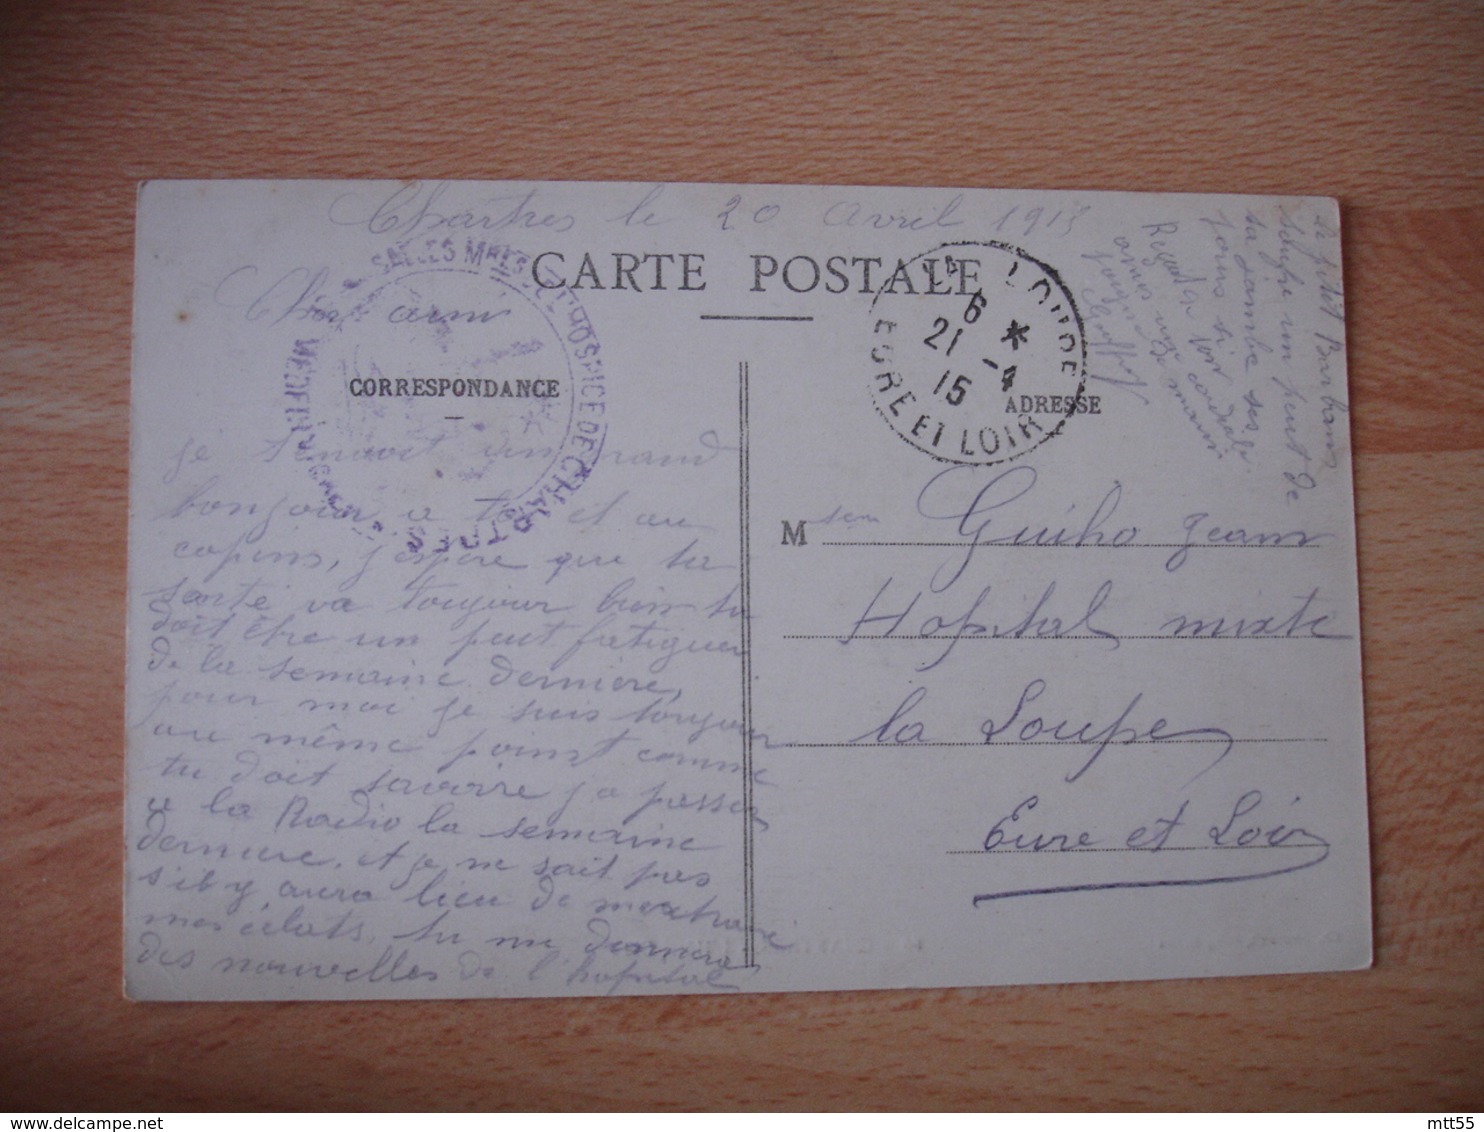 Chartres le 20 Avril 1915
CARTE POSTALE
Cher ami
CORRESPONDANCE
je t'envoit un grand
bonjour a toi et au
copins, j'espère que ta
santé va toujour bien tu
doit être un peut fatiguer
de la semaine dernière,
pour moi je suis toujour
au même point comme
tu doit savoire j'a passer
a la Radio la semaine
dernière, et je ne sait pas
s'il y aura lieu de
mes éclats, tu me donnera
des nouvelles de l'hopital
SALLES MILITAIRES DE L'HOSPICE DE CHARTRES
LOUPE
6 *
21 -4
15
EURE ET LOIR
ADRESSE
M sieu Guiho Jean
Hopital mixte
la Loupe
Eure et Loir
Le petit Barbam
souffre un peut de
sa jambe ses
jours si
mtt55